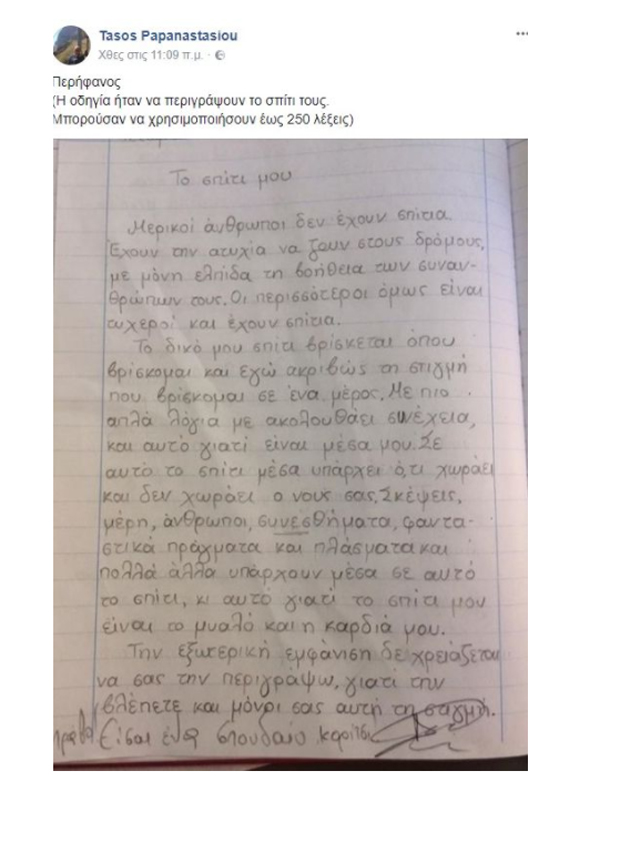 Tasos Papanastasiou
Χθες στις 11:09 π.μ. ·
Περήφανος
(Η οδηγία ήταν να περιγράψουν το σπίτι τους.
Μπορούσαν να χρησιμοποιήσουν έως 250 λέξεις)
Το σπίτι μου
Μερικοί άνθρωποι δεν έχουν σπίτια.
Έχουν την ατυχία να ζουν στους δρόμους,
με μόνη ελπίδα τη βοήθεια των συναν-
θρώπων τους. Οι περισσότεροι όμως είναι
τυχεροί και έχουν σπίτια.
Το δικό μου σπίτι βρίσκεται όπου
βρίσκομαι και εγώ ακριβώς τη στιγμή
που βρίσκομαι σε ένα μέρος. Με πιο
απλά λόγια με ακολουθάει συνέχεια,
και αυτό γιατί είναι μέσα μου. Σε
αυτό το σπίτι μέσα υπάρχει ό,τι χωράει
και δεν χωράει ο νους σας. Σκέψεις,
μέρη, άνθρωποι, συνεσθήματα, φαντα-
στικά πράγματα και πλάσματα και
πολλά άλλα υπάρχουν μέσα σε αυτό
το σπίτι, κι αυτό γιατί το σπίτι μου
είναι το μυαλό και η καρδιά μου.
Την εξωτερική εμφάνιση δε χρειάζεται
να σας την περιγράψω, γιατί την
βλέπετε και μόνοι σας αυτή τη στιγμή.
Είσαι ένα σπουδαίο κορίτσι